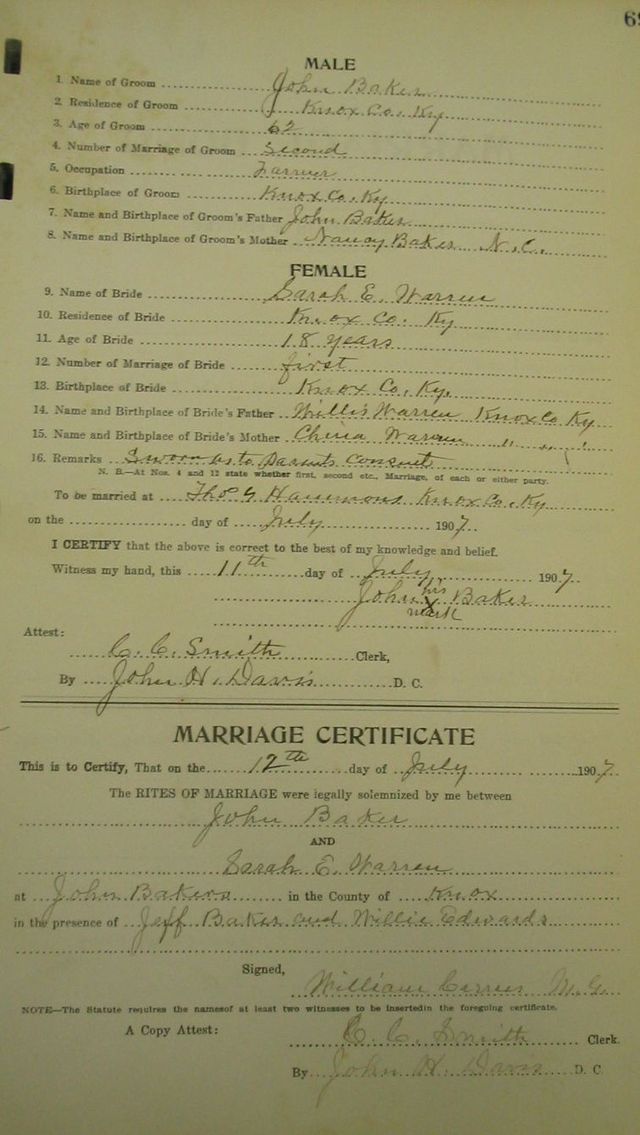 69
MALE
1. Name of Groom John Baker
2. Residence of Groom Knox Co. Ky
3. Age of Groom 62
4. Number of Marriage of Groom Second
5. Occupation Farmer
6. Birthplace of Groom Knox Co. Ky
7. Name and Birthplace of Groom's Father John Baker
8. Name and Birthplace of Groom's Mother Nancy Baker N.C.
FEMALE
9. Name of Bride Sarah E. Warren
10. Residence of Bride Knox Co. Ky
11. Age of Bride 18 years
12. Number of Marriage of Bride first
13. Birthplace of Bride Knox Co. Ky.
14. Name and Birthplace of Bride's Father Willis Warren Knox Co Ky
15. Name and Birthplace of Bride's Mother Warren " " "
16. Remarks Sworn as to Parents consent
N. B.—At Nos. 4 and 12 state whether first, second etc., Marriage, of each or either party.
To be married at Thos G Hammons Knox Co, Ky
on the day of July 1907
I CERTIFY that the above is correct to the best of my knowledge and belief.
Witness my hand, this 11th day of July 1907
John his x mark Baker
Attest:
C. C. Smith Clerk,
By John H. Davis D. C.
MARRIAGE CERTIFICATE
This is to Certify, That on the 12th day of July 1907
The RITES OF MARRIAGE were legally solemnized by me between
John Baker
AND
Sarah E. Warren
at John Bakers in the County of Knox
in the presence of Jeff Baker and Willie Edwards
Signed,
William M.G.
NOTE—The Statute requires the namesof at least two witnesses to be insertedin the foregoing certificate.
A Copy Attest: C. C. Smith Clerk.
By John H. Davis D. C.